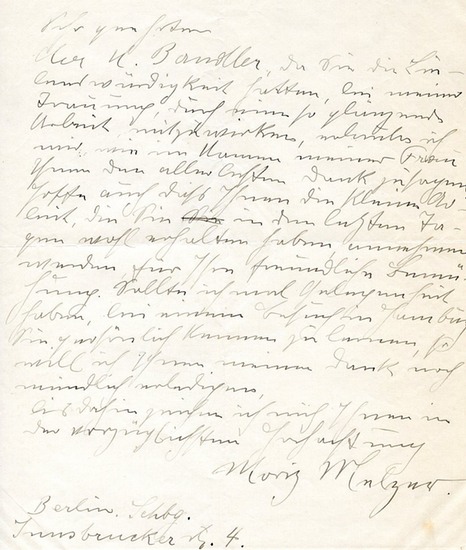 Sehr geehrter
Herr H. Bandler, da Sie die Lie-
benswürdigkeit hatten, bei meiner
Trauung durch eine so glänzende
Arbeit mitzuwirken, erlaube ich
mir, im Namen meiner Frau
Ihnen den allerbesten Dank zu sagen
hoffe auch dass Ihnen die kleine Ar
beit, die Sie in den letzten Ta-
gen wohl erhalten haben annehmen
werden für Ihre freundliche Bemü-
hung. Sollte ich mal Gelegenheit
haben, bei einem Besuch in Hamburg
Sie persönlich kennen zu lernen, so
will ich Ihnen meinen Dank noch
mündlich erledigen,
bis dahin zeichne ich mich Ihnen in
der vorzüglichsten Hochachtung
Moritz Melzer.
Berlin. Schbg.
Innsbrucker str. 4.